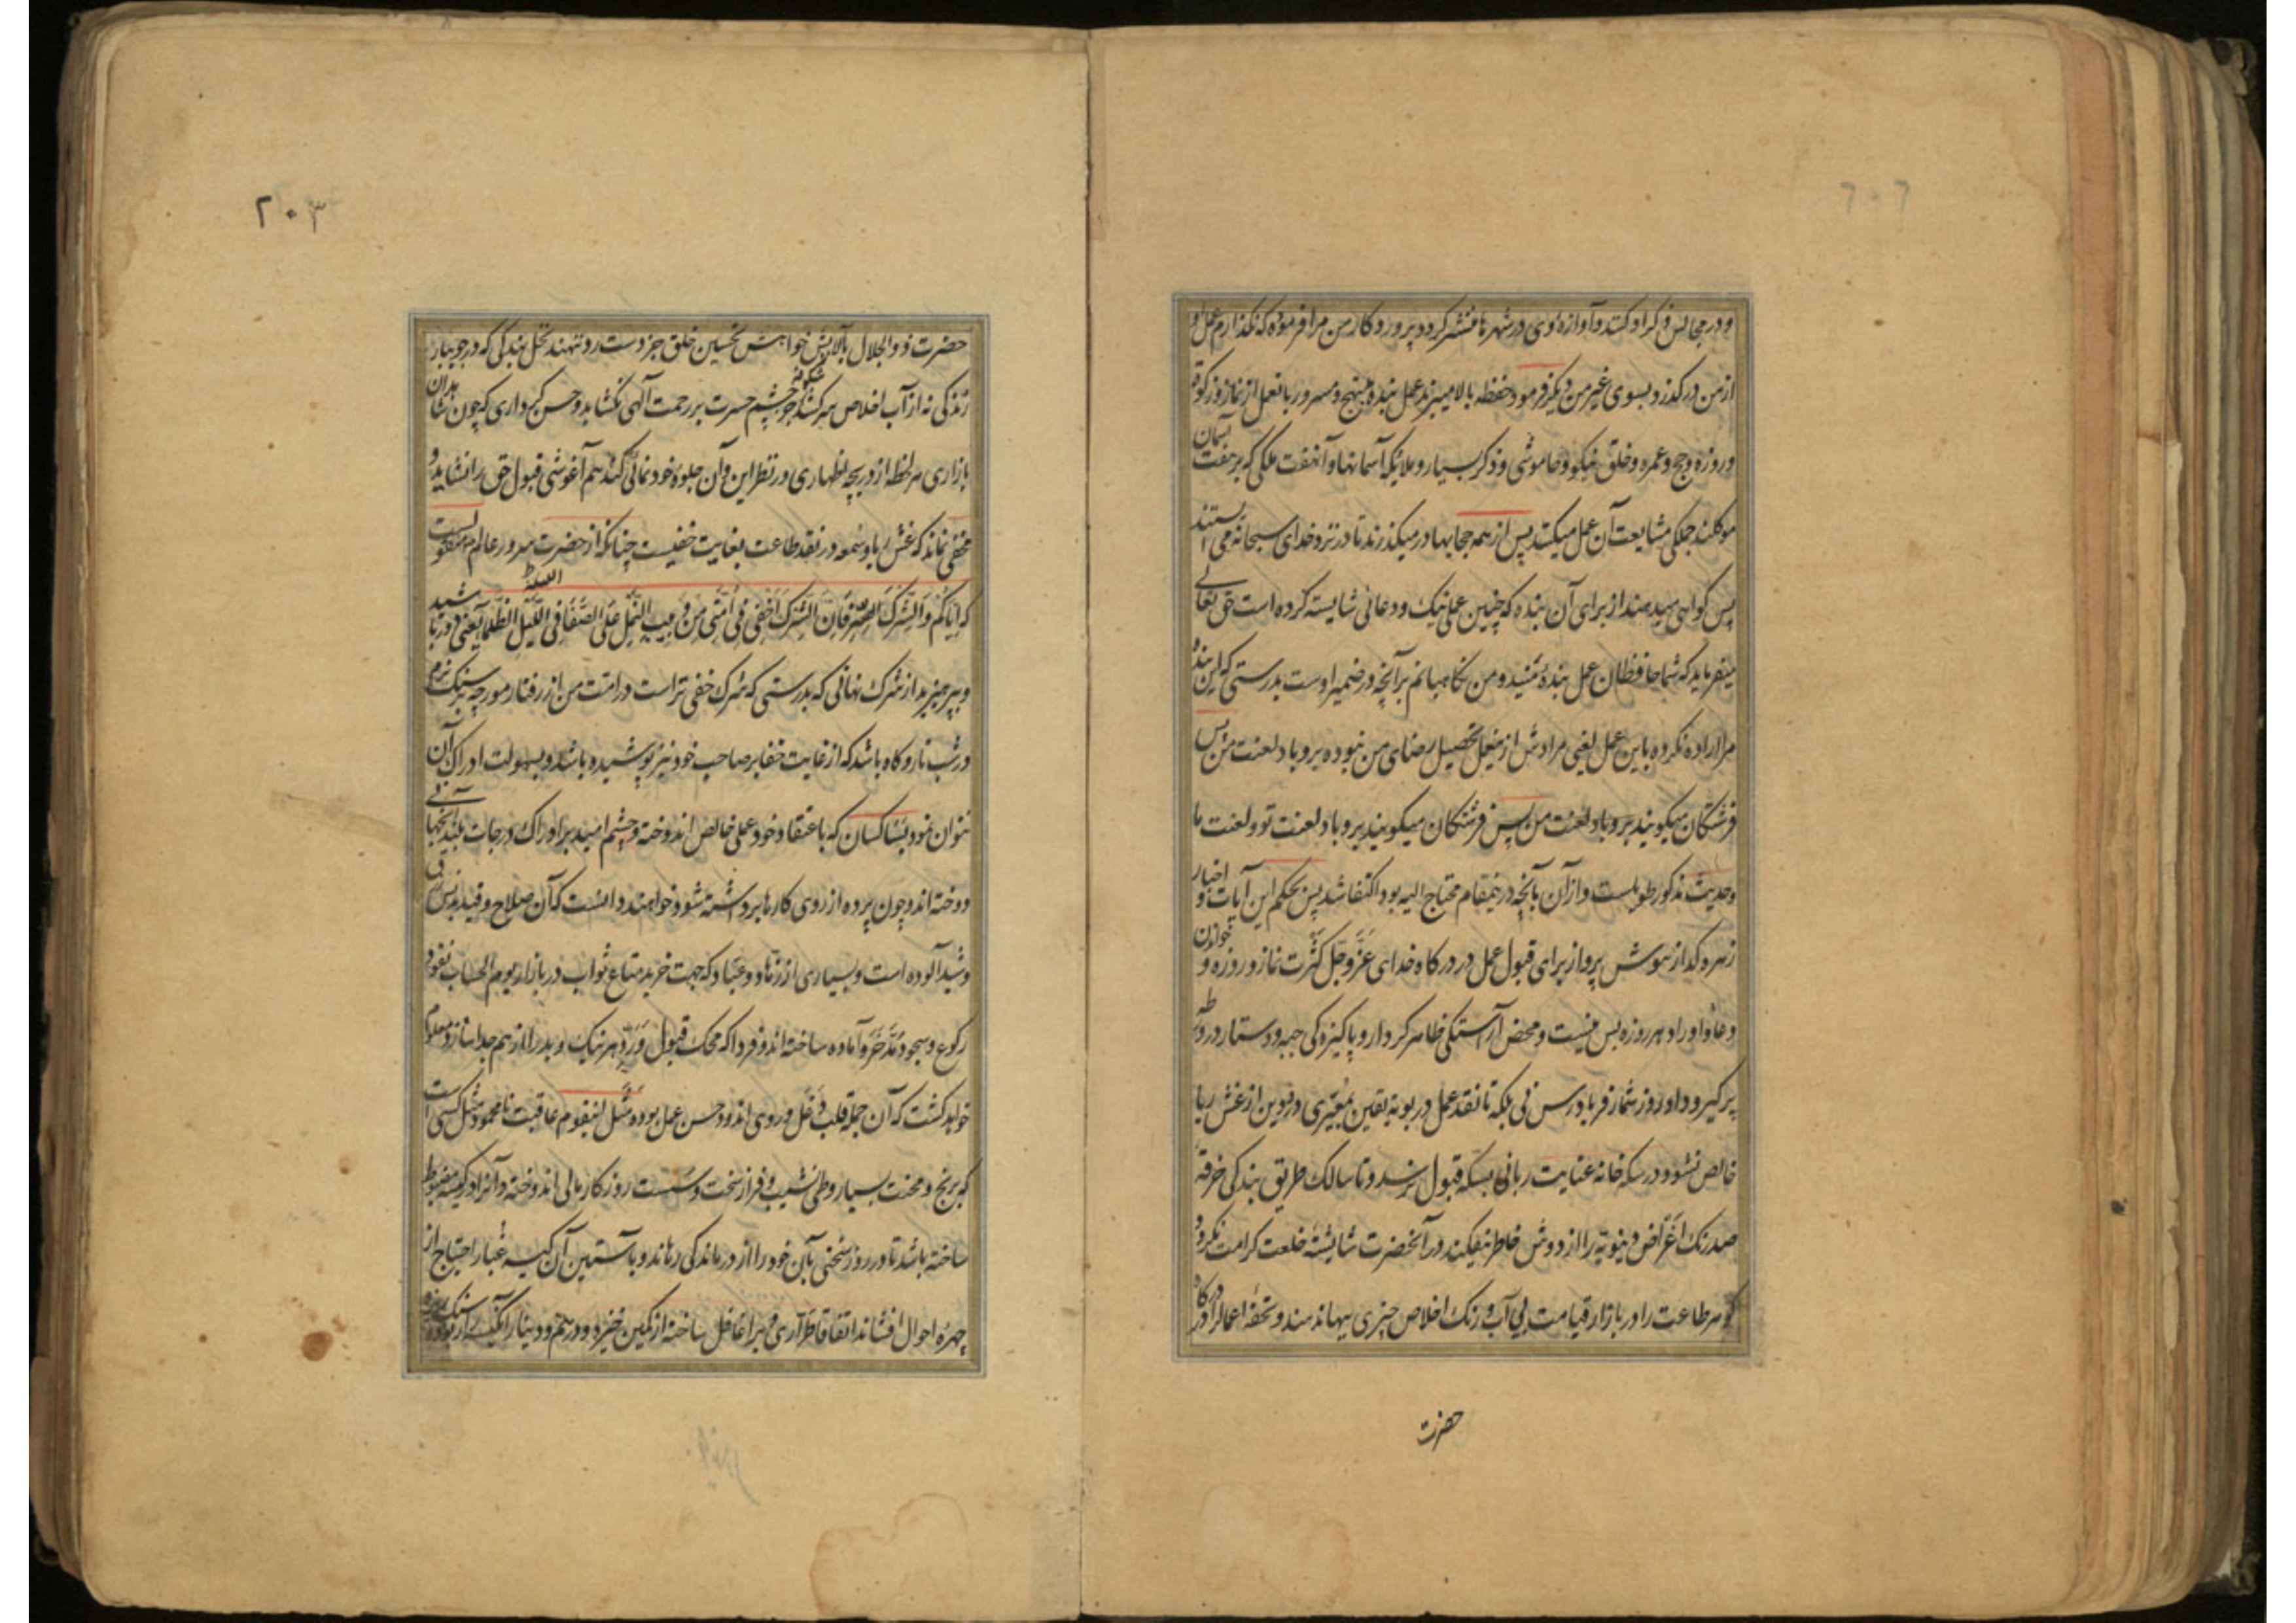 و در مجالس ذکر او کنند و آوازه وی در شهرها منتشر گردد پروردگار من مرا فرموده که نگذارم عمل او
از من درگذرد و بسوی غیر من دیگر فرمود حفظه بالا میبرند عمل بنده مبتهج و مسرور بانعمل از نماز و زکوة
و روزه و حج و عمره و خلق نیکو و خاموشی و ذکر بسیار و ملائکه آسمانها و آنهفت ملکی که بر هفت آسمان
موکلند جملگی مشایعت آن عمل میکنند پس از همه حجابها درمیگذرند تا در نزد خدای سبحانه می ایستند
پس گواهی میدهند از برای آن بنده که چنین عملی نیک و دعائی شایسته کرده است حق تعالی
میفرماید که شما حافظان عمل بنده منید و من نگاهبانم بر آنچه در ضمیر اوست بدرستی که این بنده
مرا اراده نکرده باین عمل یعنی مرادش از اینعمل تحصیل رضای من نبوده بر و باد لعنت من پس
فرشتگان میگویند برو باد لعنت من پس فرشتگان میگویند برو باد لعنت تو و لعنت ما
و حدیث مذکور طویلست و از آن بآنچه درینمقام محتاج الیه بود اکتفا شد پس بحکم این آیات و اخبار
زهره گداز هوش پرداز برای قبول عمل در درگاه خدای عزّ و جلّ کثرت نماز و روزه و خواندن
دعا و اوراد هر روزه بس نیست و محض آراستگی ظاهر کردار و پاکیزگی جبه و دستار در ورطه
پرگیر و دار روز شمار فریادرس نی بلکه تا نقد عمل در بوته یقین بمعیّری دو بین از غش ریا
خالص نشود در سکه خانه عنایت ربانی بسکه قبول نرسد و تا سالک طریق بندگی خرقه
صد رنگ اغراض دنیویه را از دوش خاطر نیفکند در آنحضرت شایسته خلعت کرامت نگردد
گوهر طاعت را در بازار قیامت بی آب و رنگ اخلاص چیزی ببها ندهند و تحفه اعمال را در درگاه
حضرت
۲۰۳
حضرت ذو الجلال بآلایش خواهش تحسین خلق جز دست رد ننهند نخل بندگی که در جویبار
زندگی نه از آب اخلاص سر کشد شکوفه جز چشم حسرت بر رحمت آلهی نگشاید و حسن کج داری که چون شاهدان
بازاری هر لحظه از دریچه اظهاری در نظر این و آن جلوه خودنمائی کند هم آغوشی قبول حق را نشاید و
مخفی نماند که غش ریا و سمعه در نقد طاعت بغایت خفیست چنانکه از حضرت سرور عالم منقولست
که ایاکم و الشرک الصغیر فان الشرک اخفی فی امتی من دبیب النمل علی الصفا فی اللیل الظلماء اللیلة یعنی دور باشید
و بپرهیزید از شرک نهانی که بدرستی که شرک خفی تر است در امت من از رفتار مورچه بر سنگ نرم
در شب تار و گاه باشد که از غایت خفا بر صاحب خود نیز پوشیده باشد و بسهولت ادراک آن
نتوان نمود بسا کسان که باعتقاد خود عملی خالص اندوخته و چشم امید بر ادراک درجات بلند آنجهانی
دوخته اند و چون پرده از روی کارها برداشته شود خواهند دانست که آن صلاح و قید بدنس
و شید آلوده است و بسیاری از زهاد و عباد که جهت خرید متاع ثواب در بازار یوم الحساب نقود
رکوع و سجود مدّخر و آماده ساخته اند و فردا که محک قبول و ردّ هر نیک و بد را از هم جدا سازد معلوم
خواهد گشت که آن جمله قلب دغل و روی اندود حسن عمل بوده مثل اینقوم عاقبت نامحمود مثل کسی است
که برنج و محنت بسیار و طی نشیب و فراز سخت و سست روزگار مالی اندوخته و آنرا در کیسه مضبوط
ساخته باشد تا در روز سختی بآن خود را از درماندگی رهاند و بآستین آن کیسه غبار احتیاج از
چهره احوال افشاند اتفاقا طرّاری ویرا غافل ساخته از کمین خیزد و درهم و دینار آنکیسه را ربوده